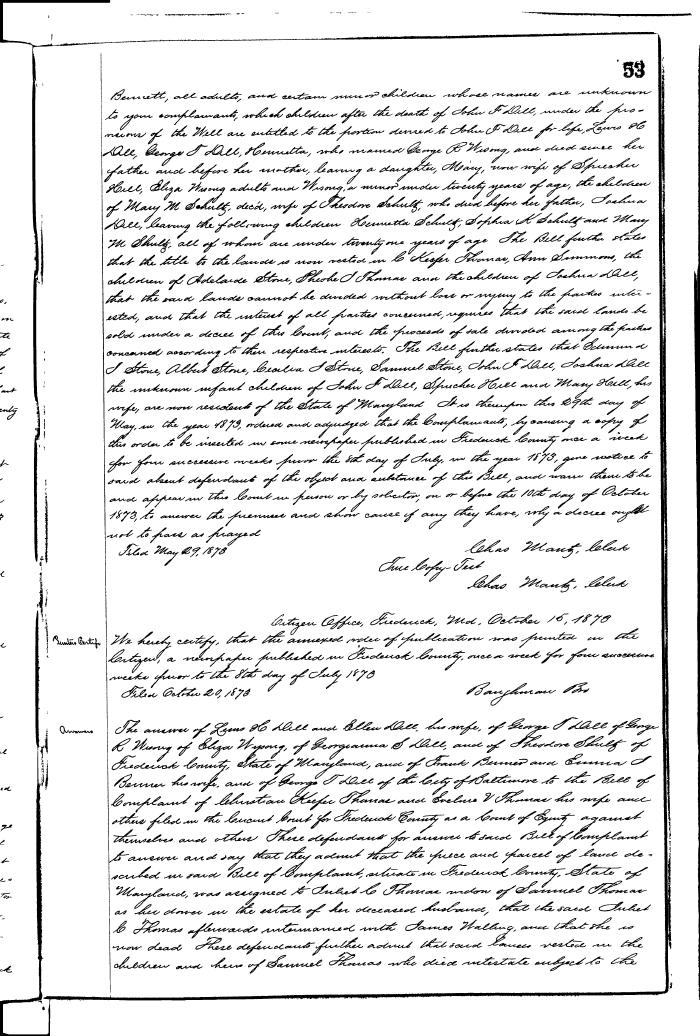 53
Bennett, all adults, and certain minor children whose names are unknown
to your complainants, which children after the death of John F Dill, under the pro-
visions of the Will are entitled to the portion devised to John F Dill for life, Lewis H
Dill, George T Dill, Henrietta, who married George R Wisong, and died since her
father and before her mother, leaving a daughter, Mary, now wife of Sprecher
Hill, Eliza Wisong adults and Wisong, a minor under twenty years of age, the children
of Mary M Schultz, decd, wife of Theodore Schultz, who died before her father, Joshua
Dill, leaving the following children Henrietta Schultz, Sophia K Schultz and Mary
M Shultz, all of whom are under twenty one years of age The Bill further states
that the title to the lands is now vested in C Keefer Thomas, Ann Simmons, the
children of Adelaide Stone, Phebe I Thomas and the children of Joshua Dill,
that the said lands cannot be divided without loss or injury to the parties inter-
ested, and that the interest of all parties concerned, requires that the said lands be
sold under a decree of this Court, and the proceeds of sale divided among the parties
concerned according to their respective interests. The Bill further states that Edmund
I Stone, Albert Stone, Cecilia I Stone, Samuel Stone, John F Dill, Joshua Dill
the unknown infant children of John F Dill, Sprecher Hill and Mary Hill, his
wife, are non residents of the State of Maryland It is thereupon this 29th day of
May, in the year 1873, ordered and adjudged that the Complainants, by causing a copy of
this order to be inserted in some newspaper published in Frederick County once a week
for four successive weeks prior the 8th day of July, in the year 1873, give notice to
said absent defendants of the object and substance of this Bill, and warn them to be
and appear in this Court in person or by solicitor, on or before the 10th day of October
1873, to answer the premises and show cause if any they have, why a decree ought
not to pass as prayed
Filed May 29, 1873 Chas Mantz, Clerk
True Copy Test
Chas Mantz, Clerk
Citizen Office, Frederick, Md, October 15, 1873
Printers Certife We hereby certify, that the annexed order of publication was printed in the
Citizen, a newspaper published in Frederick County, once a week for four successive
weeks prior to the 8th day of July 1873
Filed October 20, 1873 Baughman Bro
Answers The answer of Lewis H Dill and Ellen Dill, his wife, of George T Dill of George
R Wisong of Eliza Wysong, of Georgeanna S Dill, and of Theodore Shultz of
Frederick County, State of Maryland, and of Frank Benner and Emma I
Benner his wife, and of George T Dill of the City of Baltimore to the Bill of
Complaint of Christian Keefer Thomas and Eveline V Thomas his wife and
others filed in the Circuit Court for Frederick County as a Court of Equity against
themselves and others These defendants for answer to said Bill of Complaint
to answer and say that they admit that the piece and parcel of land de-
scribed in said Bill of Complaint, situate in Frederick County, State of
Maryland, was assigned to Juliet C Thomas widow of Samuel Thomas
as her dower in the estate of her deceased husband, that the said Juliet
C Thomas afterwards intermarried with James Walling, and that she is
now dead These defendants further admit that said lands vested in the
children and heirs of Samuel Thomas who died intestate subject to the